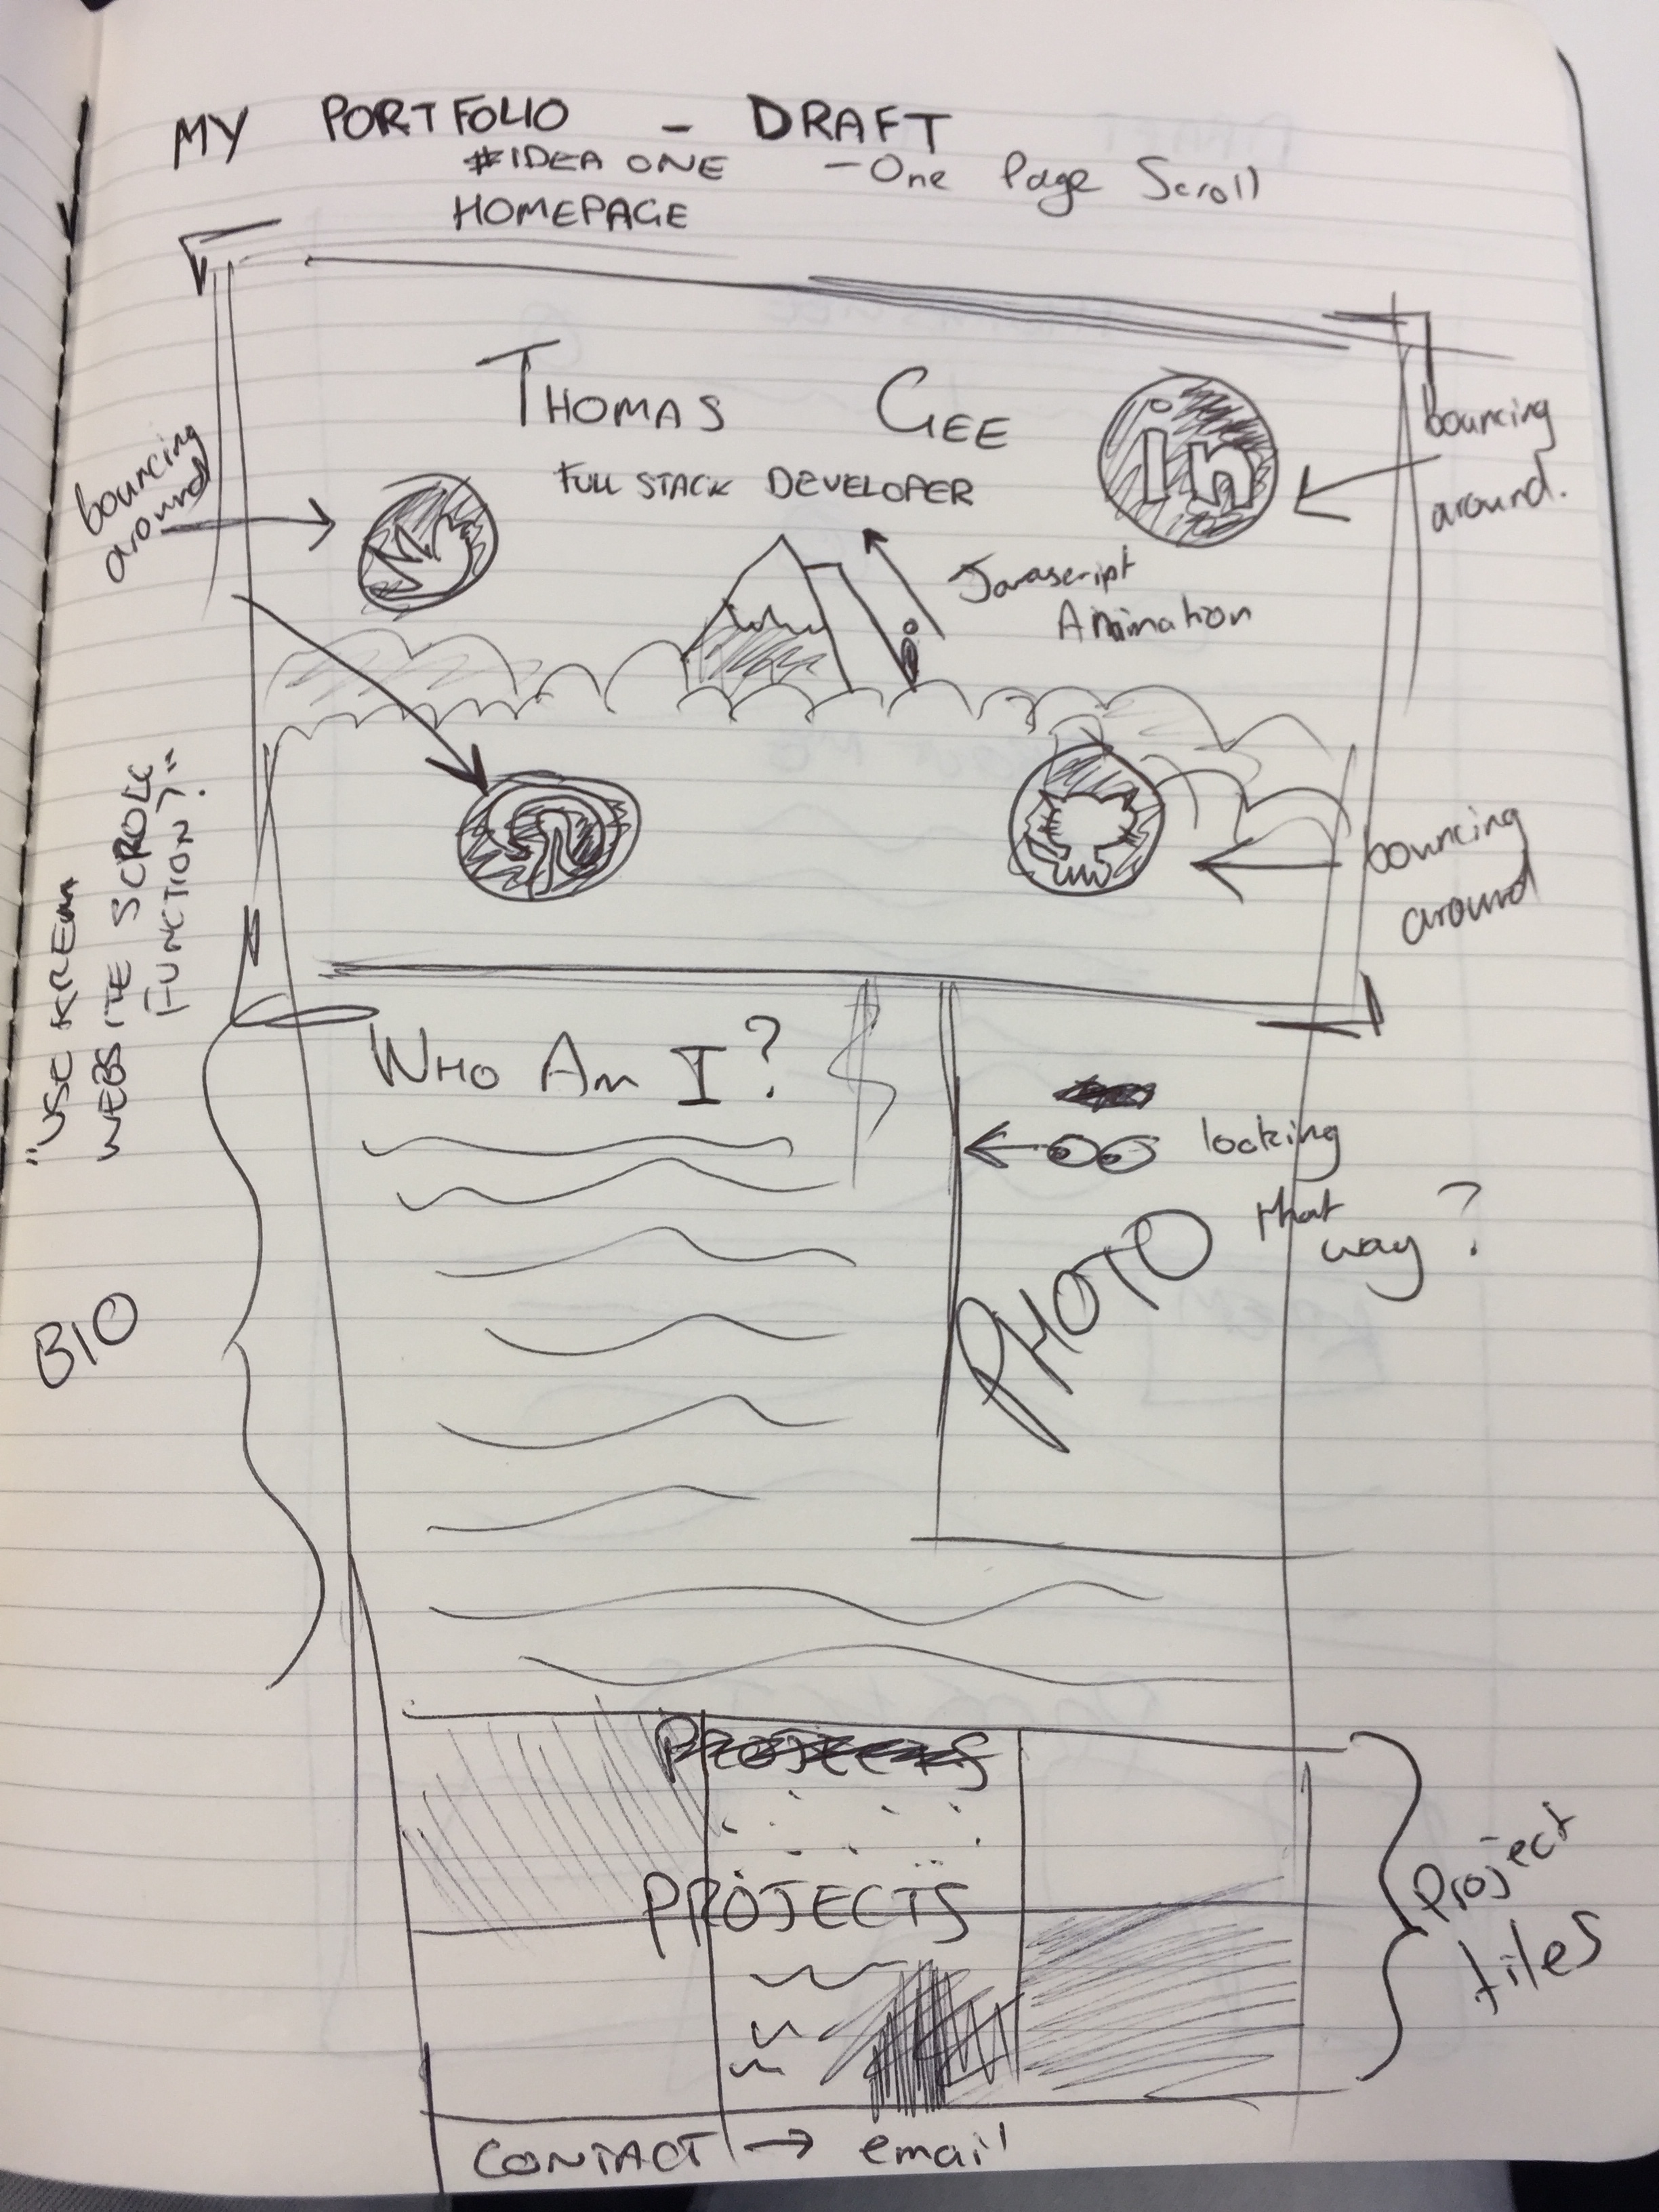 MY PORTFOLIO - DRAFT
#IDEA ONE - One Page Scroll
HOMEPAGE
THOMAS GEE
FULL STACK DEVELOPER
in
bouncing
around
bouncing
around.
Javascript
Animation
bouncing
around
"USE KREAM
WEBSITE SCROLL
FUNCTION?"
WHO AM I?
looking
that
way?
PHOTO
BIO
PROJECTS
PROJECTS
Project
tiles
CONTACT → email